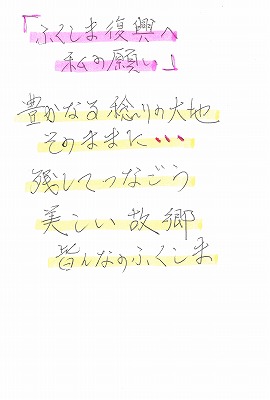 「ふくしま復興へ
私の願い」
豊かなる稔りの大地
そのままに・・・
残してつなごう
美しい故郷
皆んなのふくしま